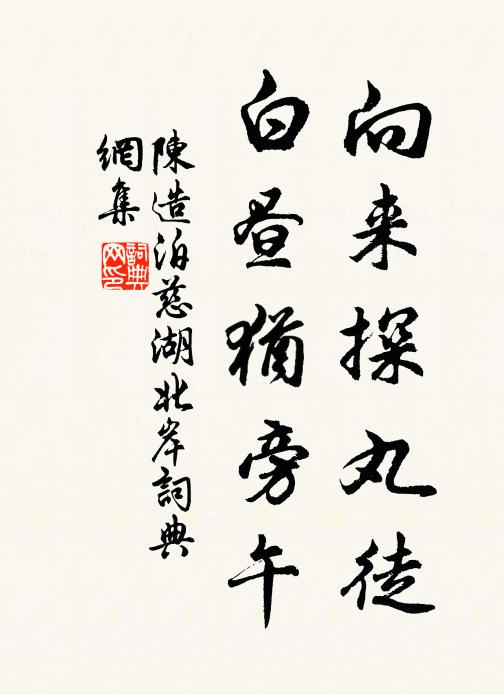 向来探丸徒
白昼猶旁午
陳造泊慈湖北岸詞典
網集
詞典
网印